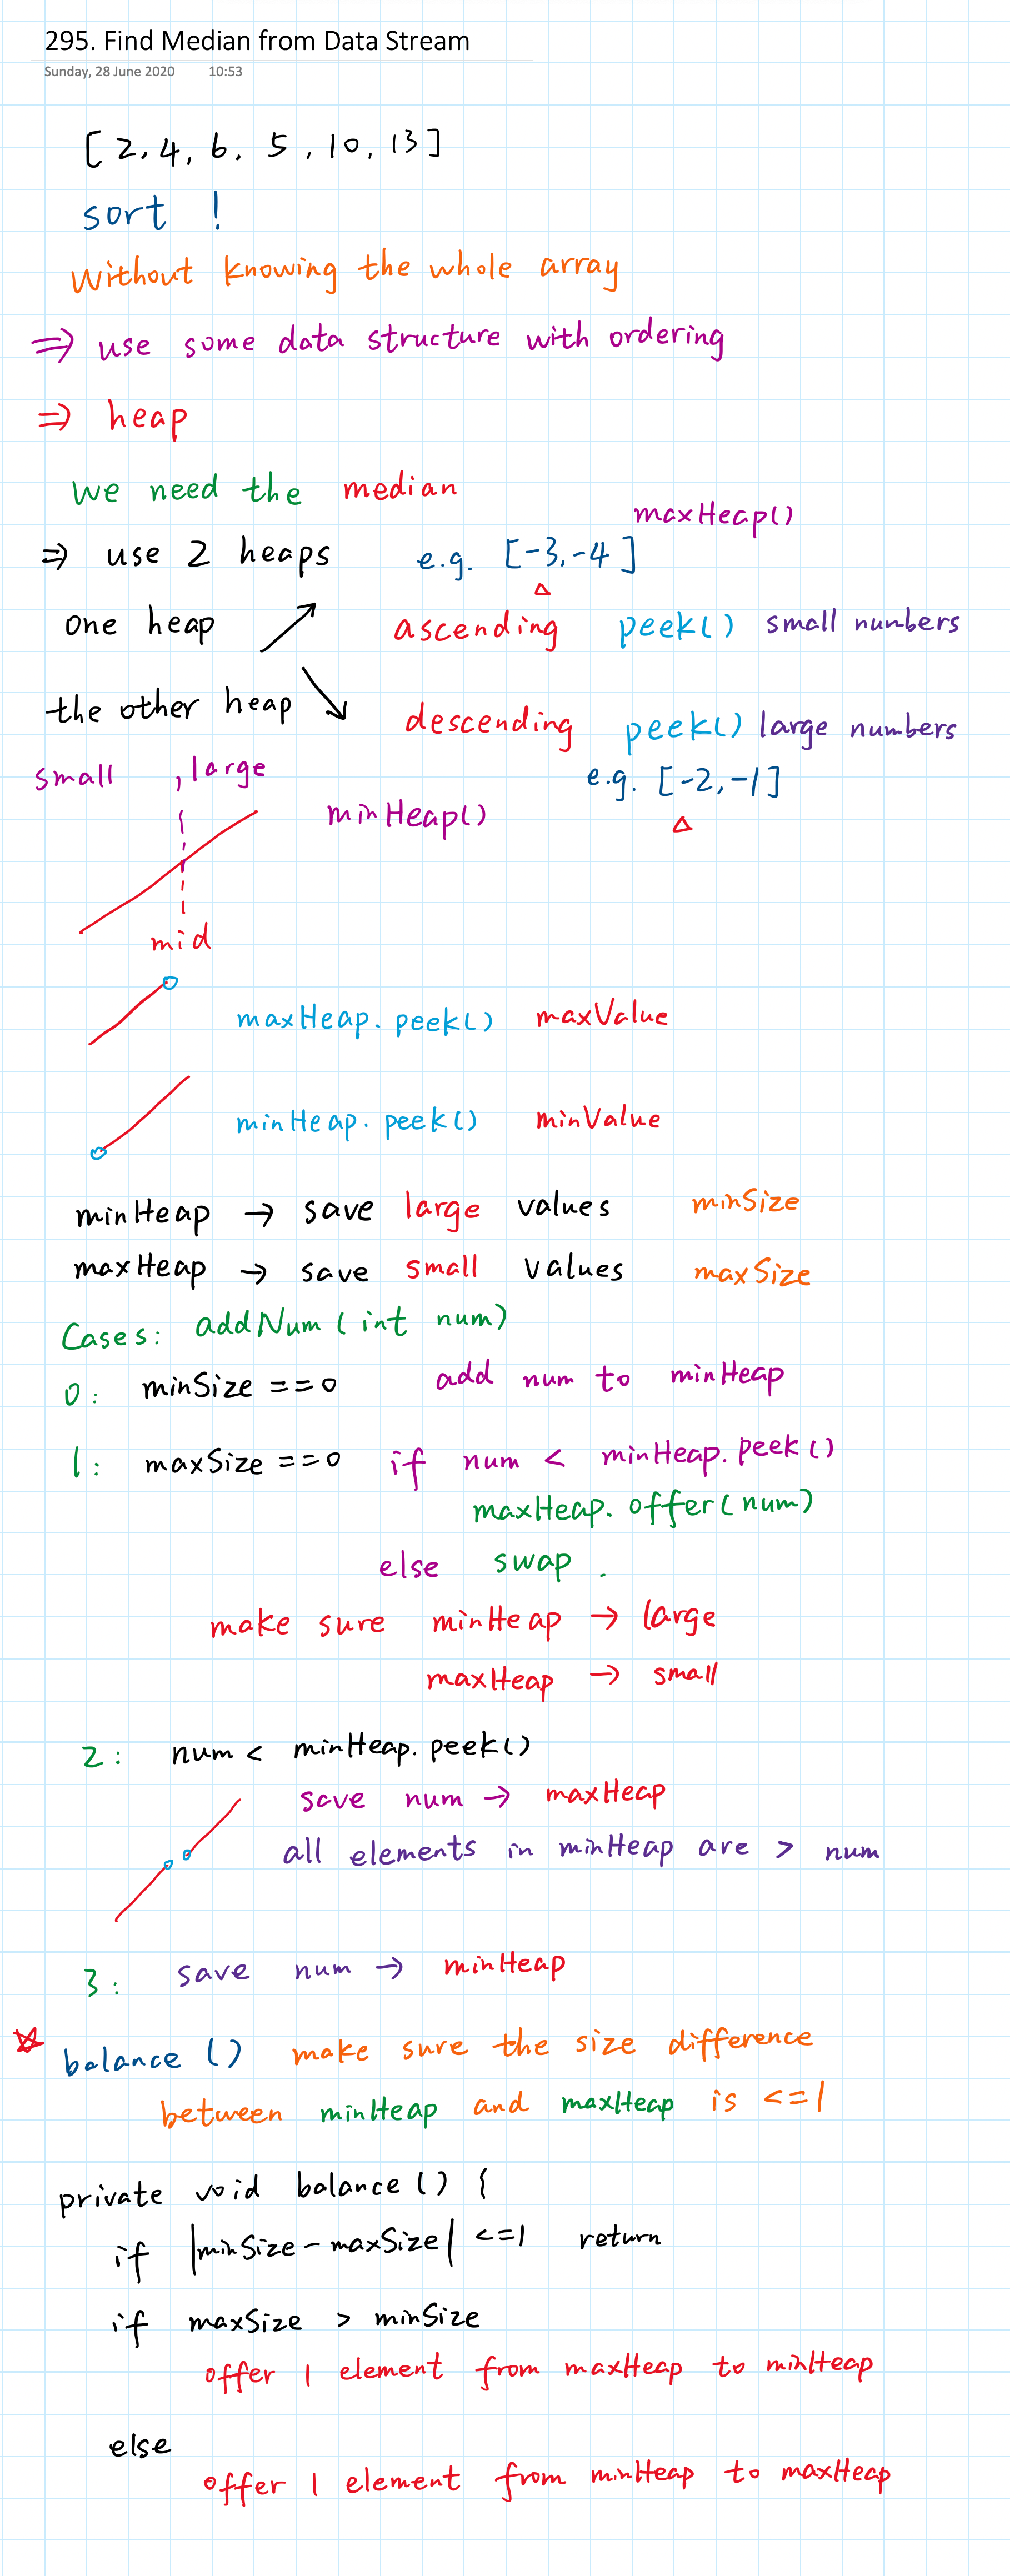 295. Find Median from Data Stream
Sunday, 28 June 2020 10:53
[ 2, 4, 6, 5, 10, 13 ]
sort !
Without knowing the whole array
⇒ use some data structure with ordering
⇒ heap
We need the median
maxHeap()
⇒ use 2 heaps e.g. [-3, -4 ]
one heap ↗ ascending peek() small numbers
the other heap ↘ descending peek() large numbers
small , large e.g. [-2, -1 ]
minHeap()
mid
maxHeap. peek() maxValue
minHeap. peek() minValue
minHeap → save large values minSize
maxHeap → save small values maxSize
Cases: addNum ( int num)
0: minSize ==0 add num to minHeap
1: maxSize ==0 if num < minHeap. peek ()
maxHeap. offer ( num)
else swap .
make sure minHeap → large
maxHeap → small
2: num < minHeap. peek()
save num → maxHeap
all elements in minHeap are > num
3: save num → minHeap
balance () make sure the size difference
between minHeap and maxHeap is <=1
private void balance () {
if |minSize - maxSize| <=1 return
if maxSize > minSize
offer 1 element from maxHeap to minHeap
else
offer 1 element from minHeap to maxHeap